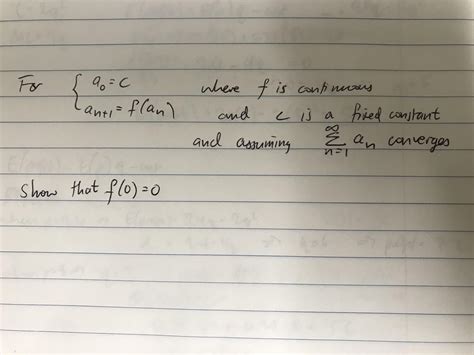 For { a₀ = c where f is continuous
aₙ₊₁ = f(aₙ) and c is a fixed constant
and assuming ∞ Σ n=1 aₙ converges
Show that f(0)=0